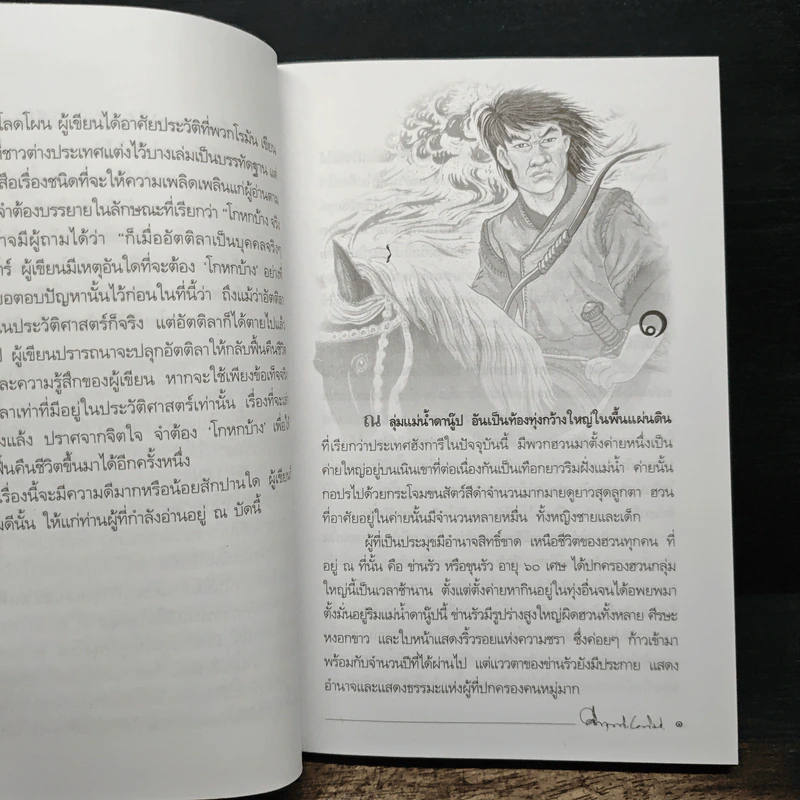 โลดโผน ผู้เขียนได้อาศัยประวัติที่พวกโรมัน เขียน
ที่ชาวต่างประเทศแต่งไว้บางเล่มเป็นบรรทัดฐาน แต่
สือเรื่องชนิดที่จะให้ความเพลิดเพลินแก่ผู้อ่านตาม
จำต้องบรรยายในลักษณะที่เรียกว่า “โกหกบ้าง จริง
าจมีผู้ถามได้ว่า “ก็เมื่ออัตติลาเป็นบุคคลจริงๆ
ร์ ผู้เขียนมีเหตุอันใดที่จะต้อง ‘โกหกบ้าง’ อย่างที่
ขอตอบปัญหานั้นไว้ก่อนในที่นี้ว่า ถึงแม้ว่าอัตติลา
นประวัติศาสตร์ก็จริง แต่อัตติลาก็ได้ตายไปแล้ว
ป ผู้เขียนปรารถนาจะปลุกอัตติลาให้กลับฟื้นคืนชีวิต
ละความรู้สึกของผู้เขียน หากจะใช้เพียงข้อเท็จจริง
ลาเท่าที่มีอยู่ในประวัติศาสตร์เท่านั้น เรื่องที่จะเล่า
งแล้ง ปราศจากจิตใจ จำต้อง ‘โกหกบ้าง’ เพื่อให้
ฟื้นคืนชีวิตขึ้นมาได้อีกครั้งหนึ่ง
เรื่องนี้จะมีความดีมากหรือน้อยสักปานใด ผู้เขียน
มดีนั้น ให้แก่ท่านผู้ที่กำลังอ่านอยู่ ณ บัดนี้
๑
ณ ลุ่มแม่น้ำดานู๊ป อันเป็นท้องทุ่งกว้างใหญ่ในพื้นแผ่นดิน
ที่เรียกว่าประเทศฮังการีในปัจจุบันนี้ มีพวกฮวนมาตั้งค่ายหนึ่งเป็น
ค่ายใหญ่อยู่บนเนินเขาที่ต่อเนื่องกันเป็นเทือกยาวริมฝั่งแม่น้ำ ค่ายนั้น
กอปรไปด้วยกระโจมขนสัตว์สีดำจำนวนมากมายดูยาวสุดลูกตา ฮวน
ที่อาศัยอยู่ในค่ายนั้นมีจำนวนหลายหมื่น ทั้งหญิงชายและเด็ก
ผู้ที่เป็นประมุขมีอำนาจสิทธิ์ขาด เหนือชีวิตของฮวนทุกคน ที่
อยู่ ณ ที่นั้น คือ ข่านรัว หรือขุนรัว อายุ ๖๐ เศษ ได้ปกครองฮวนกลุ่ม
ใหญ่นี้เป็นเวลาช้านาน ตั้งแต่ตั้งค่ายหากินอยู่ในทุ่งอื่นจนได้อพยพมา
ตั้งมั่นอยู่ริมแม่น้ำดานู๊ปนี้ ข่านรัวมีรูปร่างสูงใหญ่ผิดฮวนทั้งหลาย ศีรษะ
หงอกขาว และใบหน้าแสดงริ้วรอยแห่งความชรา ซึ่งค่อยๆ ก้าวเข้ามา
พร้อมกับจำนวนปีที่ได้ผ่านไป แต่แววตาของข่านรัวยังมีประกาย แสดง
อำนาจและแสดงธรรมะแห่งผู้ที่ปกครองคนหมู่มาก
๑